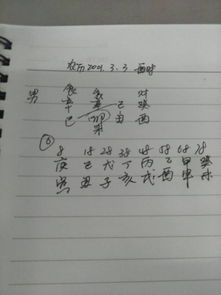 农历2001.3.3 酉时
食 食 财
男 辛 辛 己 癸
巳 卯 丑 酉
杀
8 18 28 38 48 58 68 78
庚 己 戊 丁 丙 乙 甲 癸
寅 丑 子 亥 戌 酉 申 未